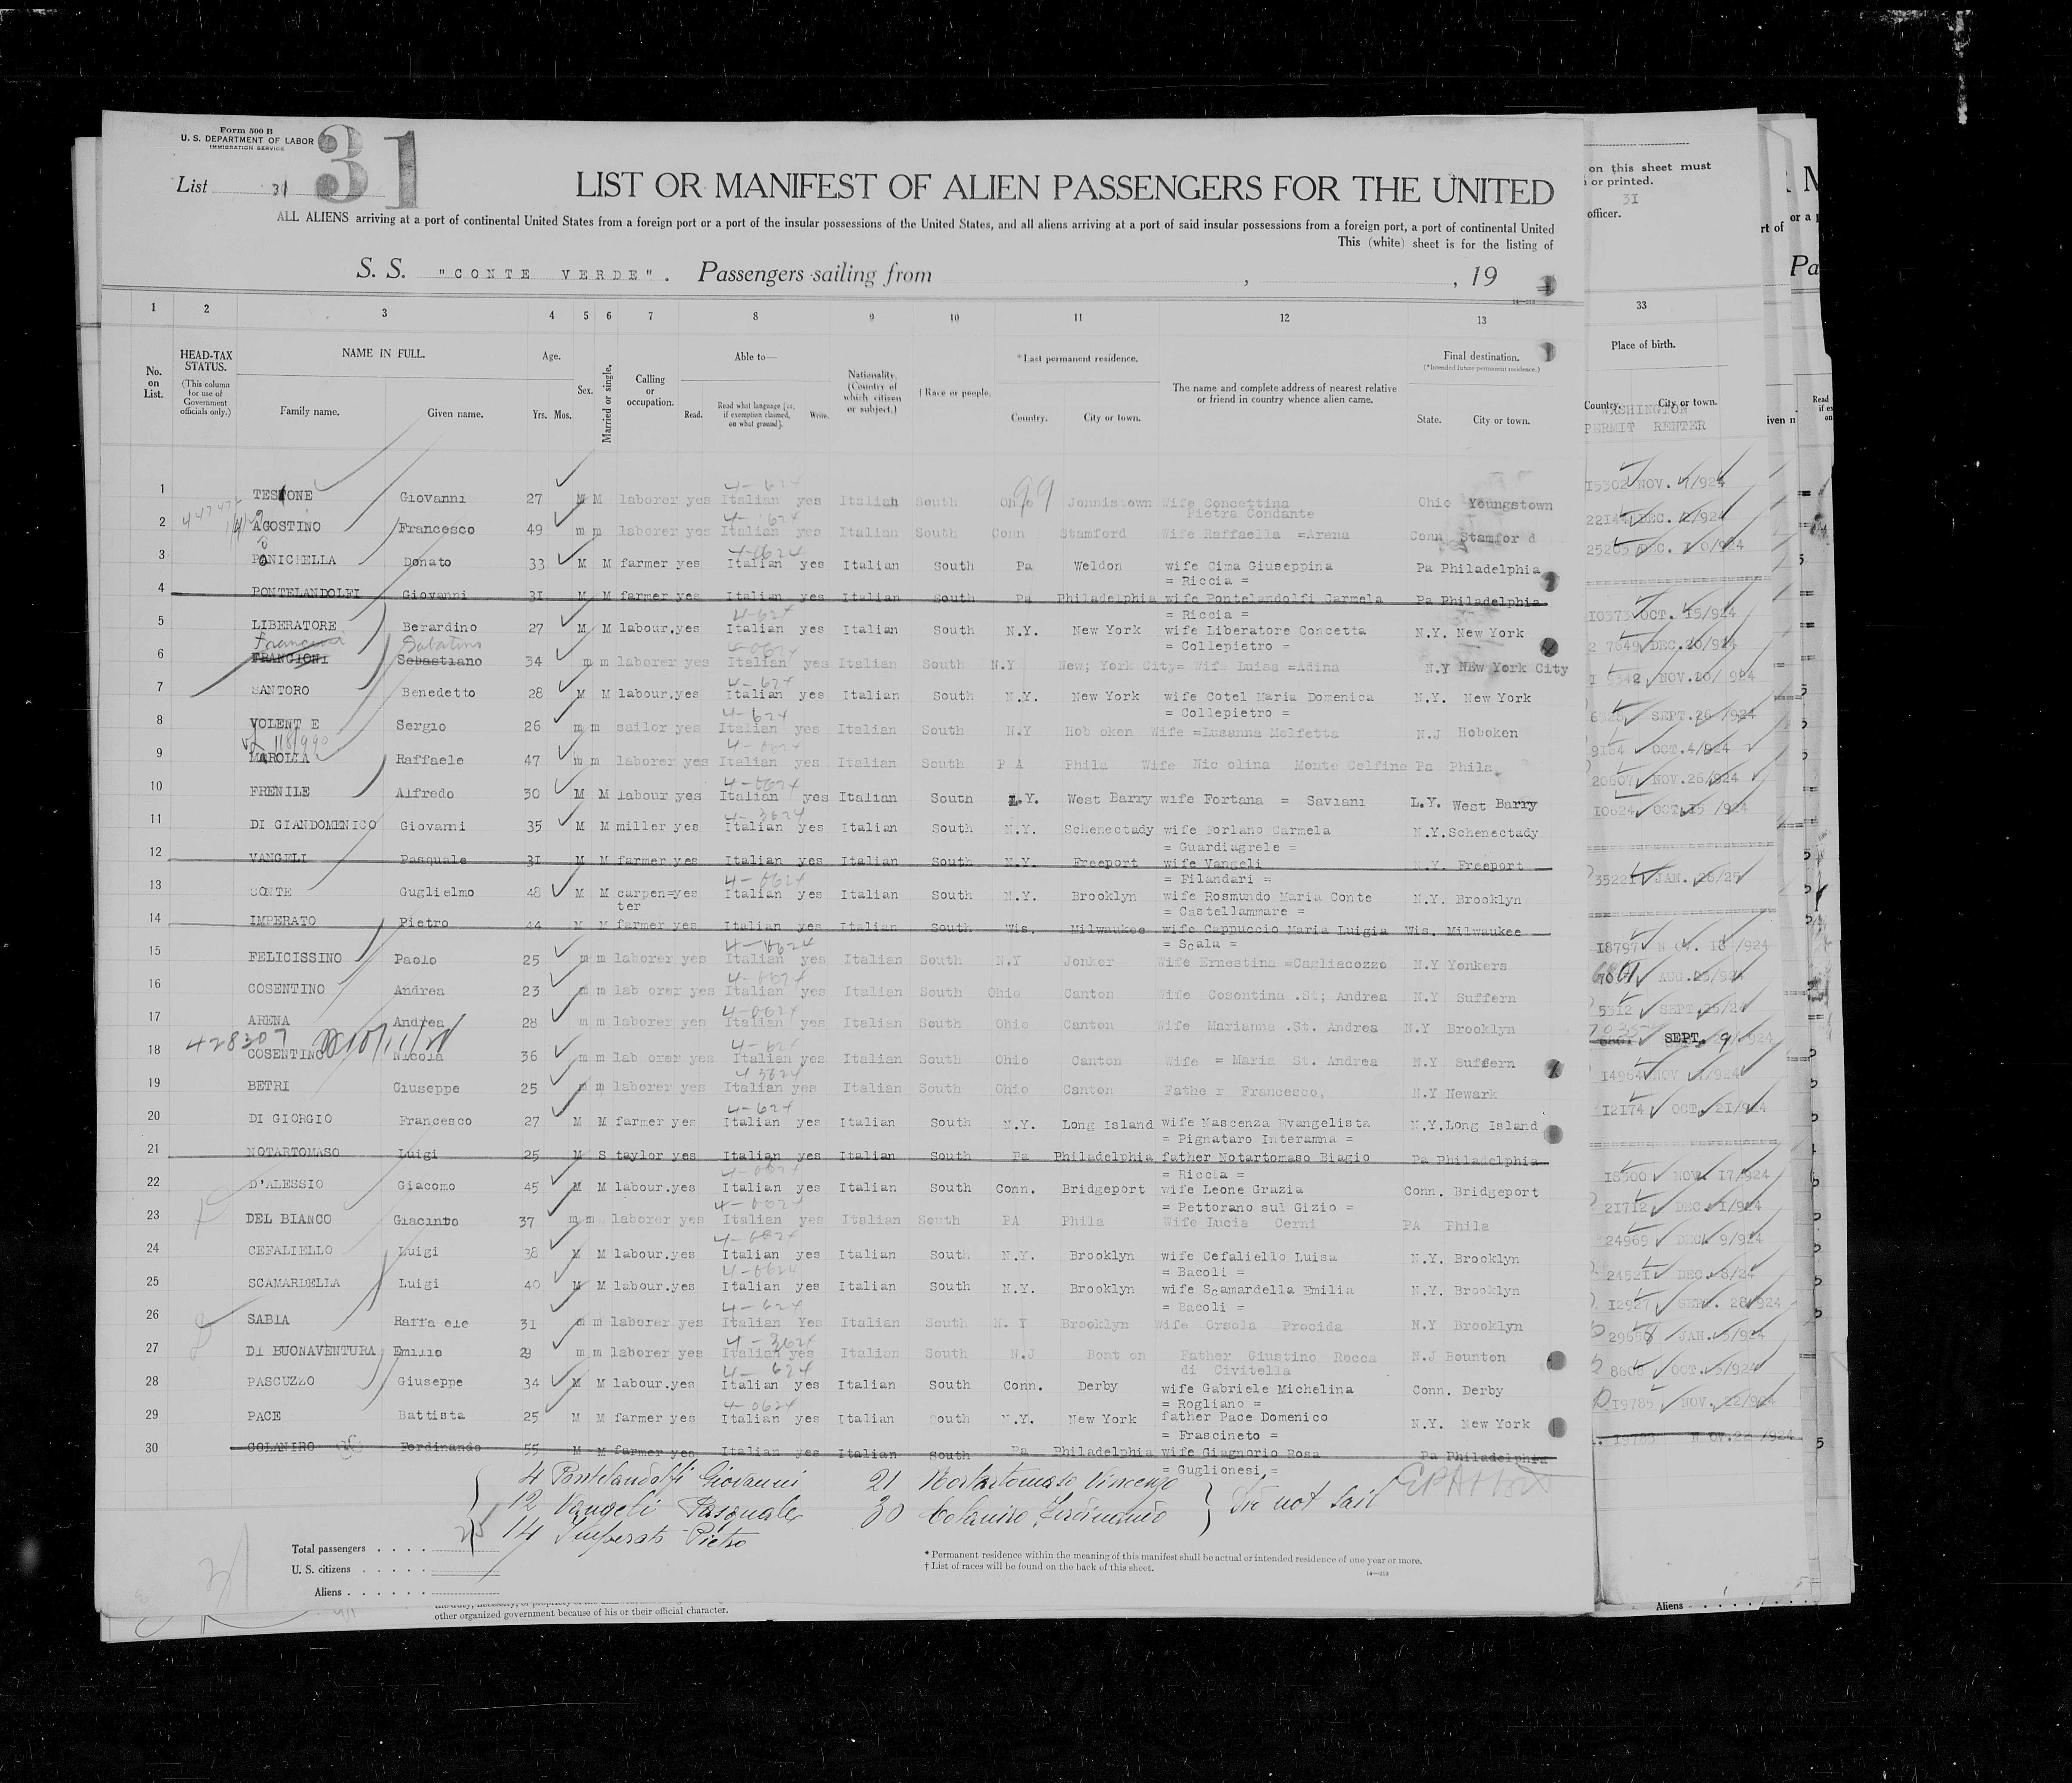 Form 500 B
U. S. DEPARTMENT OF LABOR
IMMIGRATION SERVICE
31
List 31
LIST OR MANIFEST OF ALIEN PASSENGERS FOR THE UNITED
ALL ALIENS arriving at a port of continental United States from a foreign port or a port of the insular possessions of the United States, and all aliens arriving at a port of said insular possessions from a foreign port, a port of continental United
This (white) sheet is for the listing of
S. S. "CONTE VERDE". Passengers sailing from , , 19
1 2 3 4 5 6 7 8 9 10 11 12 13
No. on List.
HEAD-TAX STATUS.
(This column for use of Government officials only.)
NAME IN FULL.
Family name. Given name.
Age.
Yrs. Mos.
Sex.
Married or single.
Calling or occupation.
Able to—
Read. Read what language [or, if exemption claimed, on what ground]. Write.
Nationality. (Country of which citizen or subject.)
† Race or people.
*Last permanent residence.
Country. City or town.
The name and complete address of nearest relative or friend in country whence alien came.
Final destination.
(*Intended future permanent residence.)
State. City or town.
1 TESTONE Giovanni 27 M M laborer yes Italian yes Italian South Ohio Jonnistown Wife Concettina Ohio Youngstown
Pietra Condante
2 AGOSTINO Francesco 49 m m laborer yes Italian yes Italian South Conn Stamford Wife Raffaella =Arena Conn Stamfor d
3 PANICHELLA Donato 33 M M farmer yes Italian yes Italian South Pa Weldon wife Cima Giuseppina Pa Philadelphia
= Riccia =
4 PONTELANDOLFI Giovanni 31 M M farmer yes Italian yes Italian South Pa Philadelphia wife Pontelandolfi Carmela Pa Philadelphia
= Riccia =
5 LIBERATORE Berardino 27 M M labour.yes Italian yes Italian South N.Y. New York wife Liberatore Concetta N.Y. New York
= Collepietro =
Sabatino
6 FRANCIONI Sebastiano 34 m m laborer yes Italian yes Italian South N.Y New; York City= Wife Luisa =Adina N.Y NEw York City
7 SANTORO Benedetto 28 M M labour.yes Italian yes Italian South N.Y. New York wife Cotel Maria Domenica N.Y. New York
= Collepietro =
8 VOLENT E Sergio 26 m m sailor yes Italian yes Italian South N.Y Hob oken Wife =Lusanna Molfetta N.J Hoboken
9 MAROLLA Raffaele 47 m m laborer yes Italian yes Italian South P A Phila Wife Nic olina Monte Colfine Pa Phila.
10 FRENILE Alfredo 30 M M labour yes Italian yes Italian South L.Y. West Barry wife Fortana = Saviani L.Y. West Barry
11 DI GIANDOMENICO Giovanni 35 M M miller yes Italian yes Italian South N.Y. Schenectady wife Dorlano Carmela N.Y.Schenectady
= Guardiagrele =
12 VANGELI Pasquale 31 M M farmer yes Italian yes Italian South N.Y. Freeport wife Vangeli N.Y. Freeport
= Filandari =
13 CONTE Guglielmo 48 M M carpen=yes Italian yes Italian South N.Y. Brooklyn wife Rosmundo Maria Conte N.Y. Brooklyn
ter = Castellammare =
14 IMPERATO Pietro 44 M M farmer yes Italian yes Italian South Wis. Milwaukee wife Cappuccio Maria Luigia Wis. Milwaukee
= Scala =
15 FELICISSINO Paolo 25 m m laborer yes Italian yes Italian South N.Y Jonker Wife Ernestina =Cagliacozzo N.Y Yonkers
16 COSENTINO Andrea 23 m m lab orer yes Italian yes Italian South Ohio Canton Wife Cosentina .St; Andrea N.Y Suffern
17 ARENA Andrea 28 m m laborer yes Italian yes Italian South Ohio Canton Wife Marianna .St. Andrea N.Y Brooklyn
428307
18 COSENTINO Nicola 36 m m lab orer yes Italian yes Italian South Ohio Canton Wife = Maria St. Andrea N.Y Suffern
19 BETRI Giuseppe 25 m m laborer yes Italian yes Italian South Ohio Canton Fathe r Francesco, N.Y Newark
20 DI GIORGIO Francesco 27 M M farmer yes Italian yes Italian South N.Y. Long Island wife Nascenza Evangelista N.Y.Long Island
= Pignataro Interamna =
21 NOTARTOMASO Luigi 25 M S taylor yes Italian yes Italian South Pa Philadelphia father Notartomaso Biagio Pa Philadelphia
= Riccia =
22 D'ALESSIO Giacomo 45 M M labour.yes Italian yes Italian South Conn. Bridgeport wife Leone Grazia Conn. Bridgeport
= Pettorano sul Gizio =
23 DEL BIANCO Giacinto 37 m m laborer yes Italian yes Italian South PA Phila Wife Lucia Cerni PA Phila
24 CEFALIELLO Luigi 38 M M labour.yes Italian yes Italian South N.Y. Brooklyn wife Cefaliello Luisa N.Y. Brooklyn
= Bacoli =
25 SCAMARDELLA Luigi 40 M M labour.yes Italian yes Italian South N.Y. Brooklyn wife Scamardella Emilia N.Y. Brooklyn
= Bacoli =
26 SABIA Raffa ele 31 m m laborer yes Italian Yes Italian South N. Y Brooklyn Wife Orsola Procida N.Y Brooklyn
27 DI BUONAVENTURA Emilio 29 m m laborer yes Italian yes Italian South N.J Bont on Father Giustino Rocca N.J Bounton
di Civitella
28 PASCUZZO Giuseppe 34 M M labour.yes Italian yes Italian South Conn. Derby wife Gabriele Michelina Conn. Derby
= Rogliano =
29 PACE Battista 25 M M farmer yes Italian yes Italian South N.Y. New York father Pace Domenico N.Y. New York
= Frascineto =
30 COLANIRO Ferdinando 55 M M farmer yes Italian yes Italian South Pa Philadelphia wife Giagnorio Rosa Pa Philadelphia
= Guglionesi =
4 Pontelandolfi Giovanni 21 Nortartomaso Vincenzo
12 Vangeli Pasquale 30 Colaniro Ferdinando Did not Sail
14 Imperato Pietro
Total passengers . . . . 25
U. S. citizens
Aliens
* Permanent residence within the meaning of this manifest shall be actual or intended residence of one year or more.
† List of races will be found on the back of this sheet.
other organized government because of his or their official character.
on this sheet must
or printed.
31
officer.
33
Place of birth.
Country. City or town.
WASHINGTON
PERMIT RENTER
15302 NOV. 4/924
DEC. 12/924
25205 DEC. 10/924
10373 OCT. 15/924
7649 DEC.20/924
NOV.10/ 924
SEPT.26 /924
9164 OCT.4/924
20607 NOV.26/924
10624 OCT.15 /924
35221 JAN. 28/25
18797 NOV. 18 /924
AUG.25/924
5312 SEPT.25/24
SEPT. 9/924
14964 NOV /924
12174 OCT. 21/924
18500 NOV. 17/924
21712 DEC. 1/924
24969 DEC. 9/924
24521 DEC. 8/24
12927 SEPT. 28/924
JAN. 5/924
OCT. 5/924
19785 NOV. 22/924
19785 NOV.22 /924
Aliens